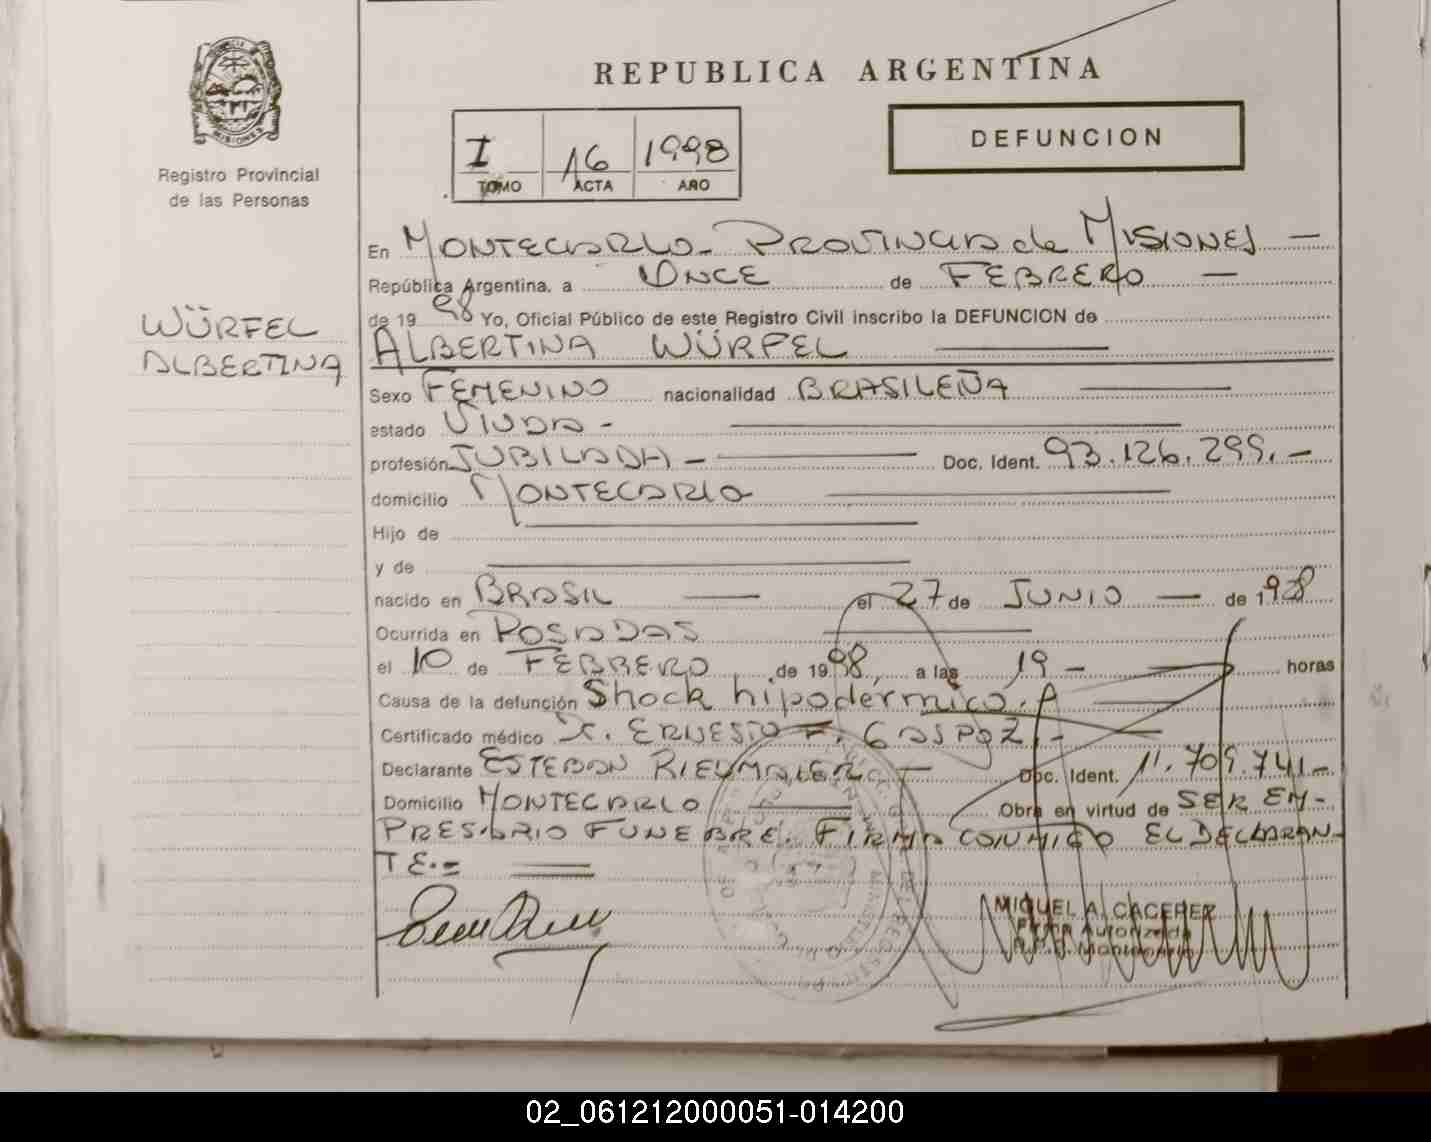 PROVINCIA DE
MISIONES
Registro Provincial
de las Personas
WÜRFEL
ALBERTINA
REPUBLICA ARGENTINA
I 16 1998
TOMO ACTA AÑO
DEFUNCION
En MONTECARLO - PROVINCIA de MISIONES —
República Argentina, a ONCE de FEBRERO —
de 1998 Yo, Oficial Público de este Registro Civil inscribo la DEFUNCION de
ALBERTINA WÜRFEL
Sexo FEMENINO nacionalidad BRASILEÑA
estado VIUDA -
profesión JUBILADA - Doc. Ident. 93.126.299.-
domicilio MONTECARLO
Hijo de
y de
nacido en BRASIL — el 27 de JUNIO — de 1928
Ocurrida en POSADAS
el 10 de FEBRERO de 1998, a las 19 - horas
Causa de la defunción Shock hipodermico. A
Certificado médico Dr. ERNESTO F. GASPOZ.-
Declarante ESTEBAN RIEUMAIER - Doc. Ident. 11.709.741-
Domicilio MONTECARLO Obra en virtud de SER EM-
PRESARIO FUNEBRE. FIRMA CONMIGO EL DECLARAN-
TE.=
MIGUEL A. CACEREZ
Firma Autorizada
02_061212000051-014200